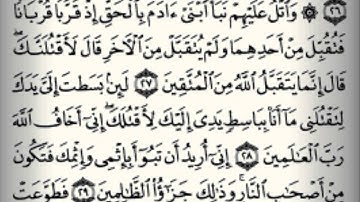 ﴿٢٦﴾ ۞ وَٱتۡلُ عَلَيۡهِمۡ نَبَأَ ٱبۡنَيۡ ءَادَمَ بِٱلۡحَقِّ إِذۡ قَرَّبَا قُرۡبَانٗا
فَتُقُبِّلَ مِنۡ أَحَدِهِمَا وَلَمۡ يُتَقَبَّلۡ مِنَ ٱلۡأٓخَرِ قَالَ لَأَقۡتُلَنَّكَۖ
قَالَ إِنَّمَا يَتَقَبَّلُ ٱللَّهُ مِنَ ٱلۡمُتَّقِينَ ﴿٢٧﴾ لَئِنۢ بَسَطتَ إِلَيَّ يَدَكَ
لِتَقۡتُلَنِي مَآ أَنَا۠ بِبَاسِطٖ يَدِيَ إِلَيۡكَ لِأَقۡتُلَكَۖ إِنِّيٓ أَخَافُ ٱللَّهَ
رَبَّ ٱلۡعَٰلَمِينَ ﴿٢٨﴾ إِنِّيٓ أُرِيدُ أَن تَبُوٓأَ بِإِثۡمِي وَإِثۡمِكَ فَتَكُونَ
مِنۡ أَصۡحَٰبِ ٱلنَّارِۚ وَذَٰلِكَ جَزَٰٓؤُاْ ٱلظَّٰلِمِينَ ﴿٢٩﴾ فَطَوَّعَتۡ